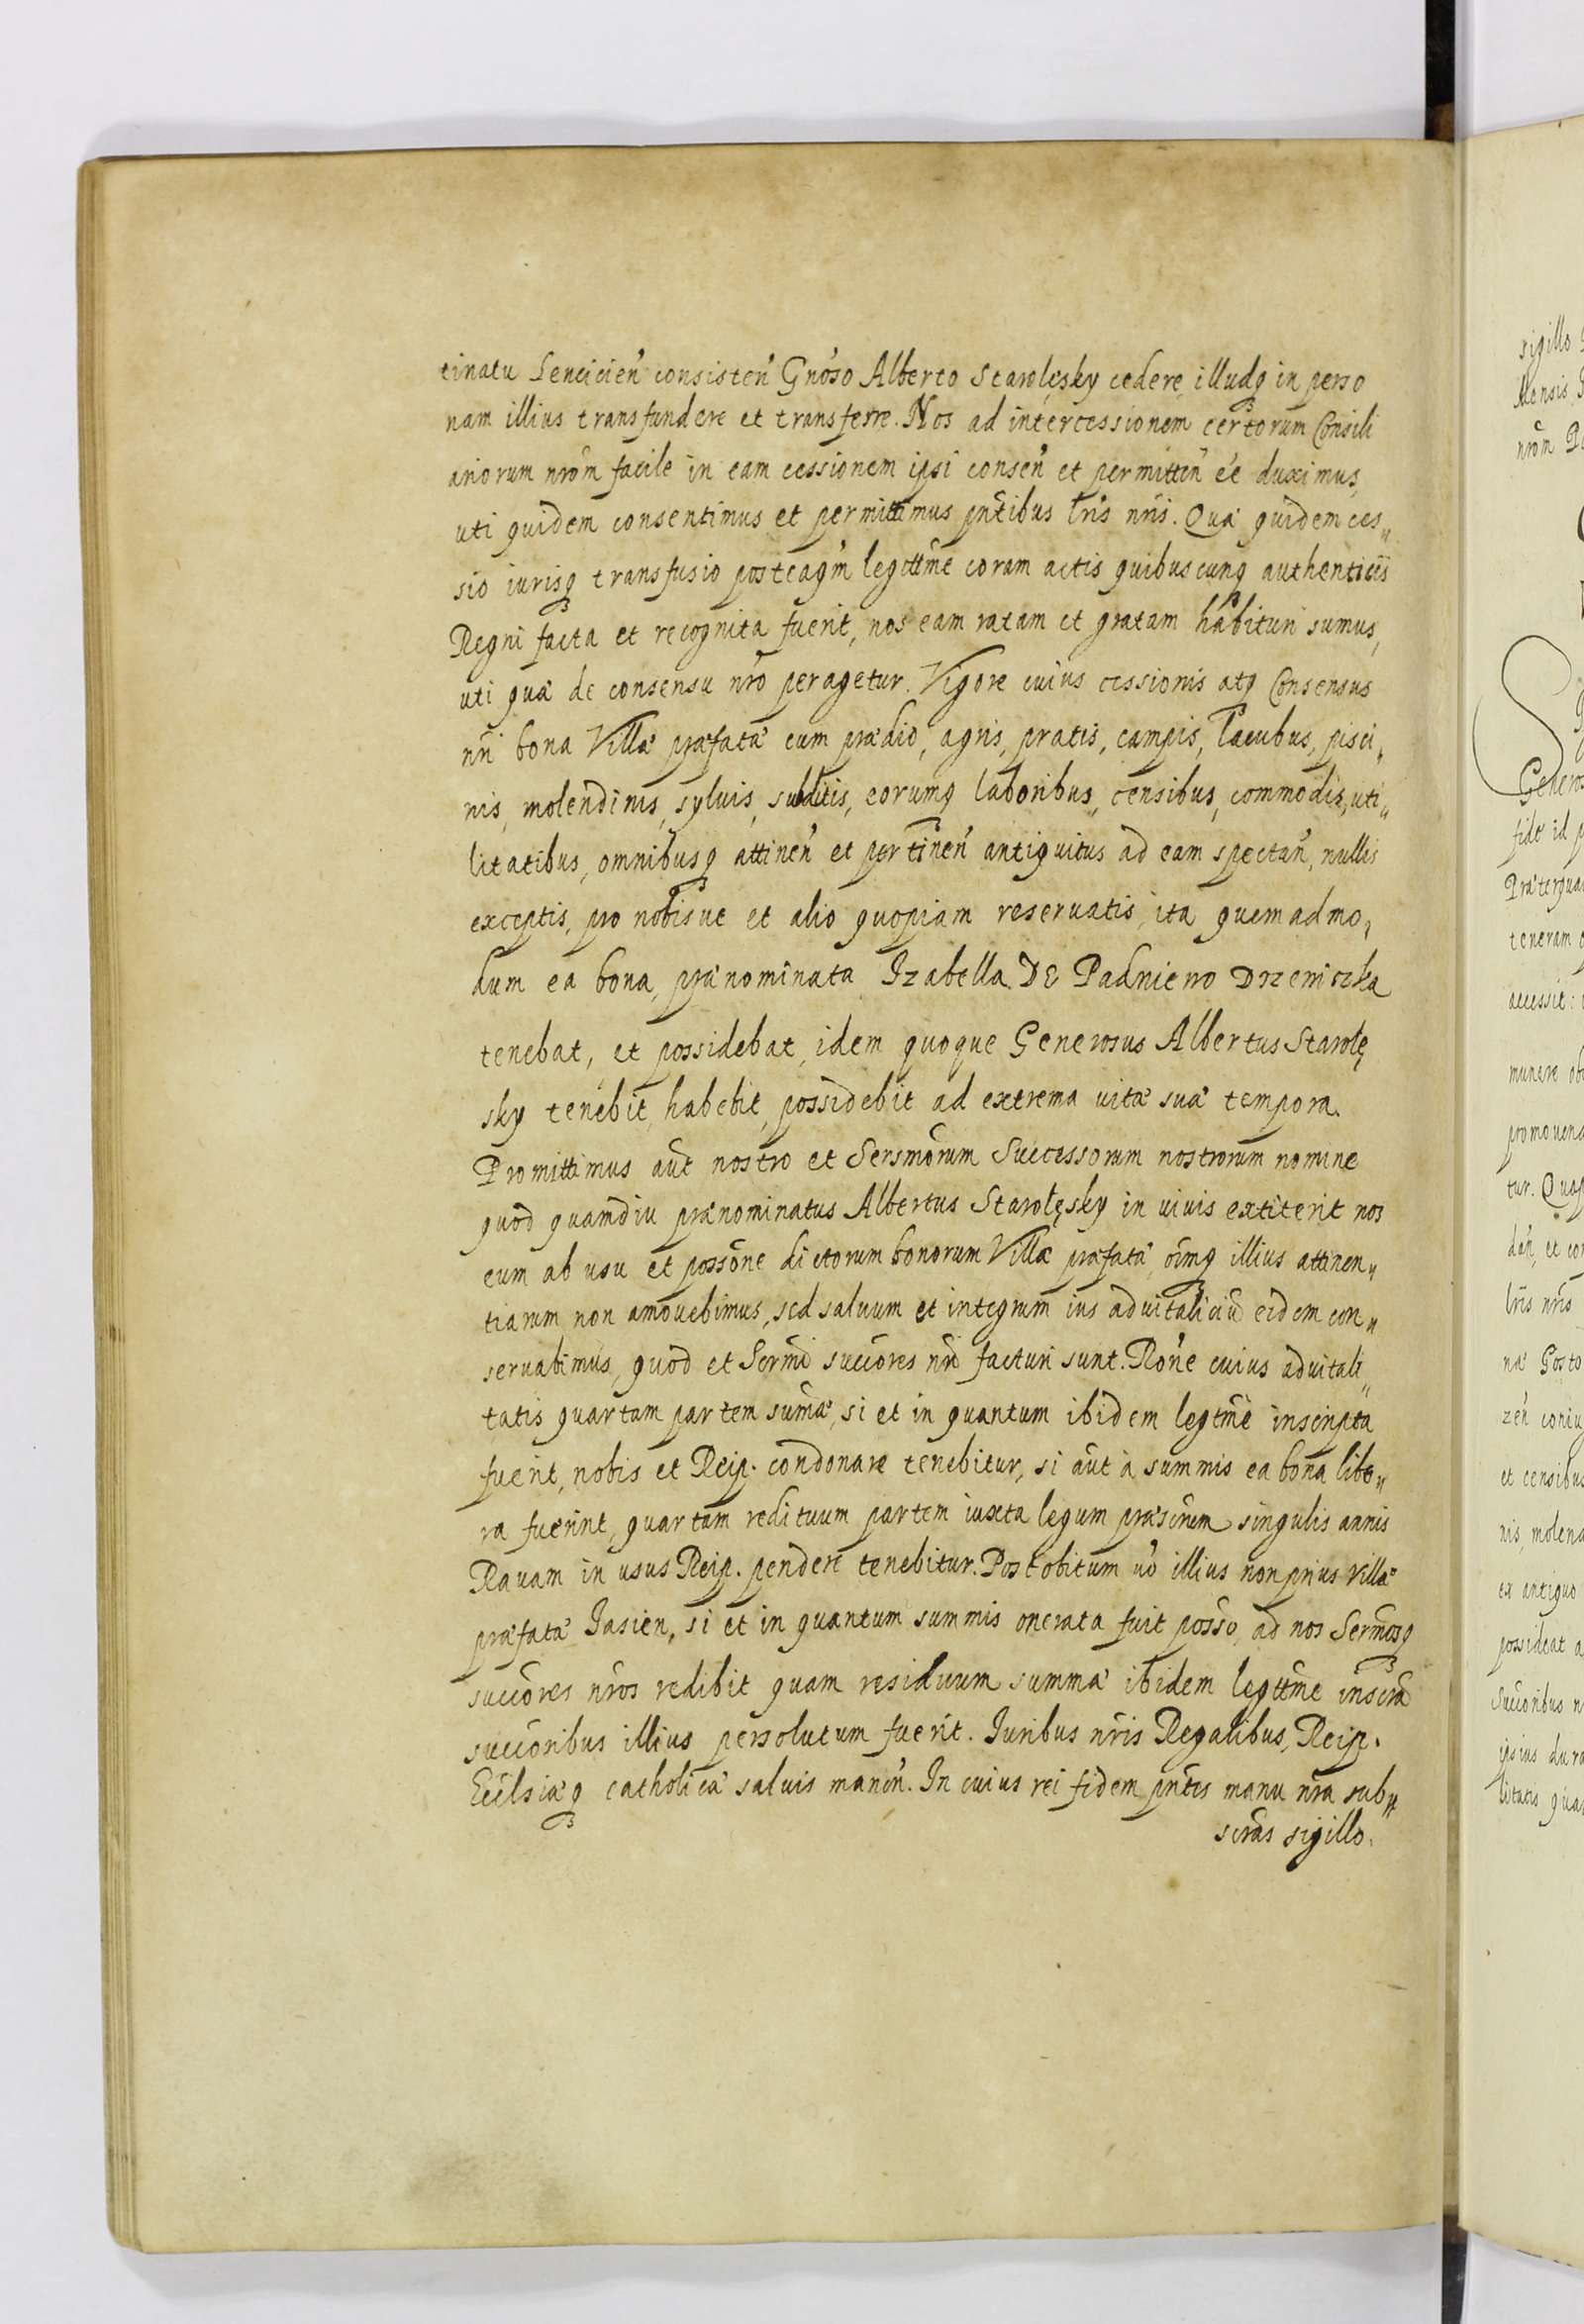 tinatu Lencicień consisteń Gnóso Alberto Starolęsky cedere, illudq̃ in perso
nam illius transfundere et transferre. Nos ad intercessionem certorum Consili
ariorum nrõm facile in eam cessionem ipsi conseń et permitteń eē duximus,
uti quidem consentimus et permittimus pntibus lrĩs nrĩs. Quæ quidem ces„
sio iurisq̃ transfusio posteaqm̃ legittme coram actis quibuscunq̃ authenticis
Regni facta et recognita fuerit, nos eam ratam et gratam habituri sumus,
uti quæ de consensu nrõ peragetur. Vigore cuius cessionis atq̃ Consensus
nrĩ bona Villæ præfatæ cum prædio, agris, pratis, campis, lacubus, pisci„
nis, molendinis, syluis, subditis, eorumq̃ laboribus, censibus, commodis, uti„
litatibus, omnibusq̃ attineń et pertineń antiquitus ad eam spectań, nullis
exceptis, pro nobisue et alio quopiam reseruatis, ita quemadmo„
dum ea bona prænominata Izabella DE Padniewo Drzewiczka
tenebat, et possidebat, idem quoque Generosus Albertus Starolę
sky tenebit, habebit, possidebit ad extrema uitæ suæ tempora.
Promittimus aũt nostro et Sersmõrum Successorum nostrorum nomine
quod quamdiu prænominatus Albertus Starolęsky in uiuis extiterit nos
eum ab usu et possõne dictorum bonorum Villæ præfatæ oĩmq̃ illius attinen„
tiarum non amouebimus, sed saluum et integrum ius aduitaliciũ eidem con„
seruabimus, quod et Sermĩ succores nrĩ facturi sunt. Rońe cuius aduitali„
tatis quartam partem sum̃æ, si et in quantum ibidem legtmẽ inscripta
fuerit, nobis et Reip. condonare tenebitur, si aũt à summis ea bona libe„
ra fuerint, quartam redituum partem iuxta legum præscrum̃ singulis annis
Rauam in usus Reip. pendere tenebitur. Post obitum uõ illius non prius Villæ
præfatæ Jasien, si et in quantum summis onerata fuit posso ad nos Sermosq̃
succores nrõs redibit quam residuum summæ ibidem legttmẽ inscræ
succoribus illius persolutum fuerit. Iuribus nrĩs Regalibus, Reip.
Ecclsiæq̃ catholicæ saluis maneń. In cuius rei fidem pntes manu nrã sub„
scras sigillo.